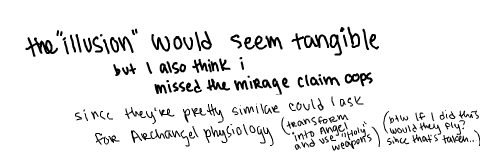 the "illusion" would seem tangible
but I also think i
missed the mirage claim oops
since they're pretty similar could I ask
for Archangel physiology (transform
into angel
and use "Holy"
weapons) (btw if I did this
would they fly?
since that's taken...)